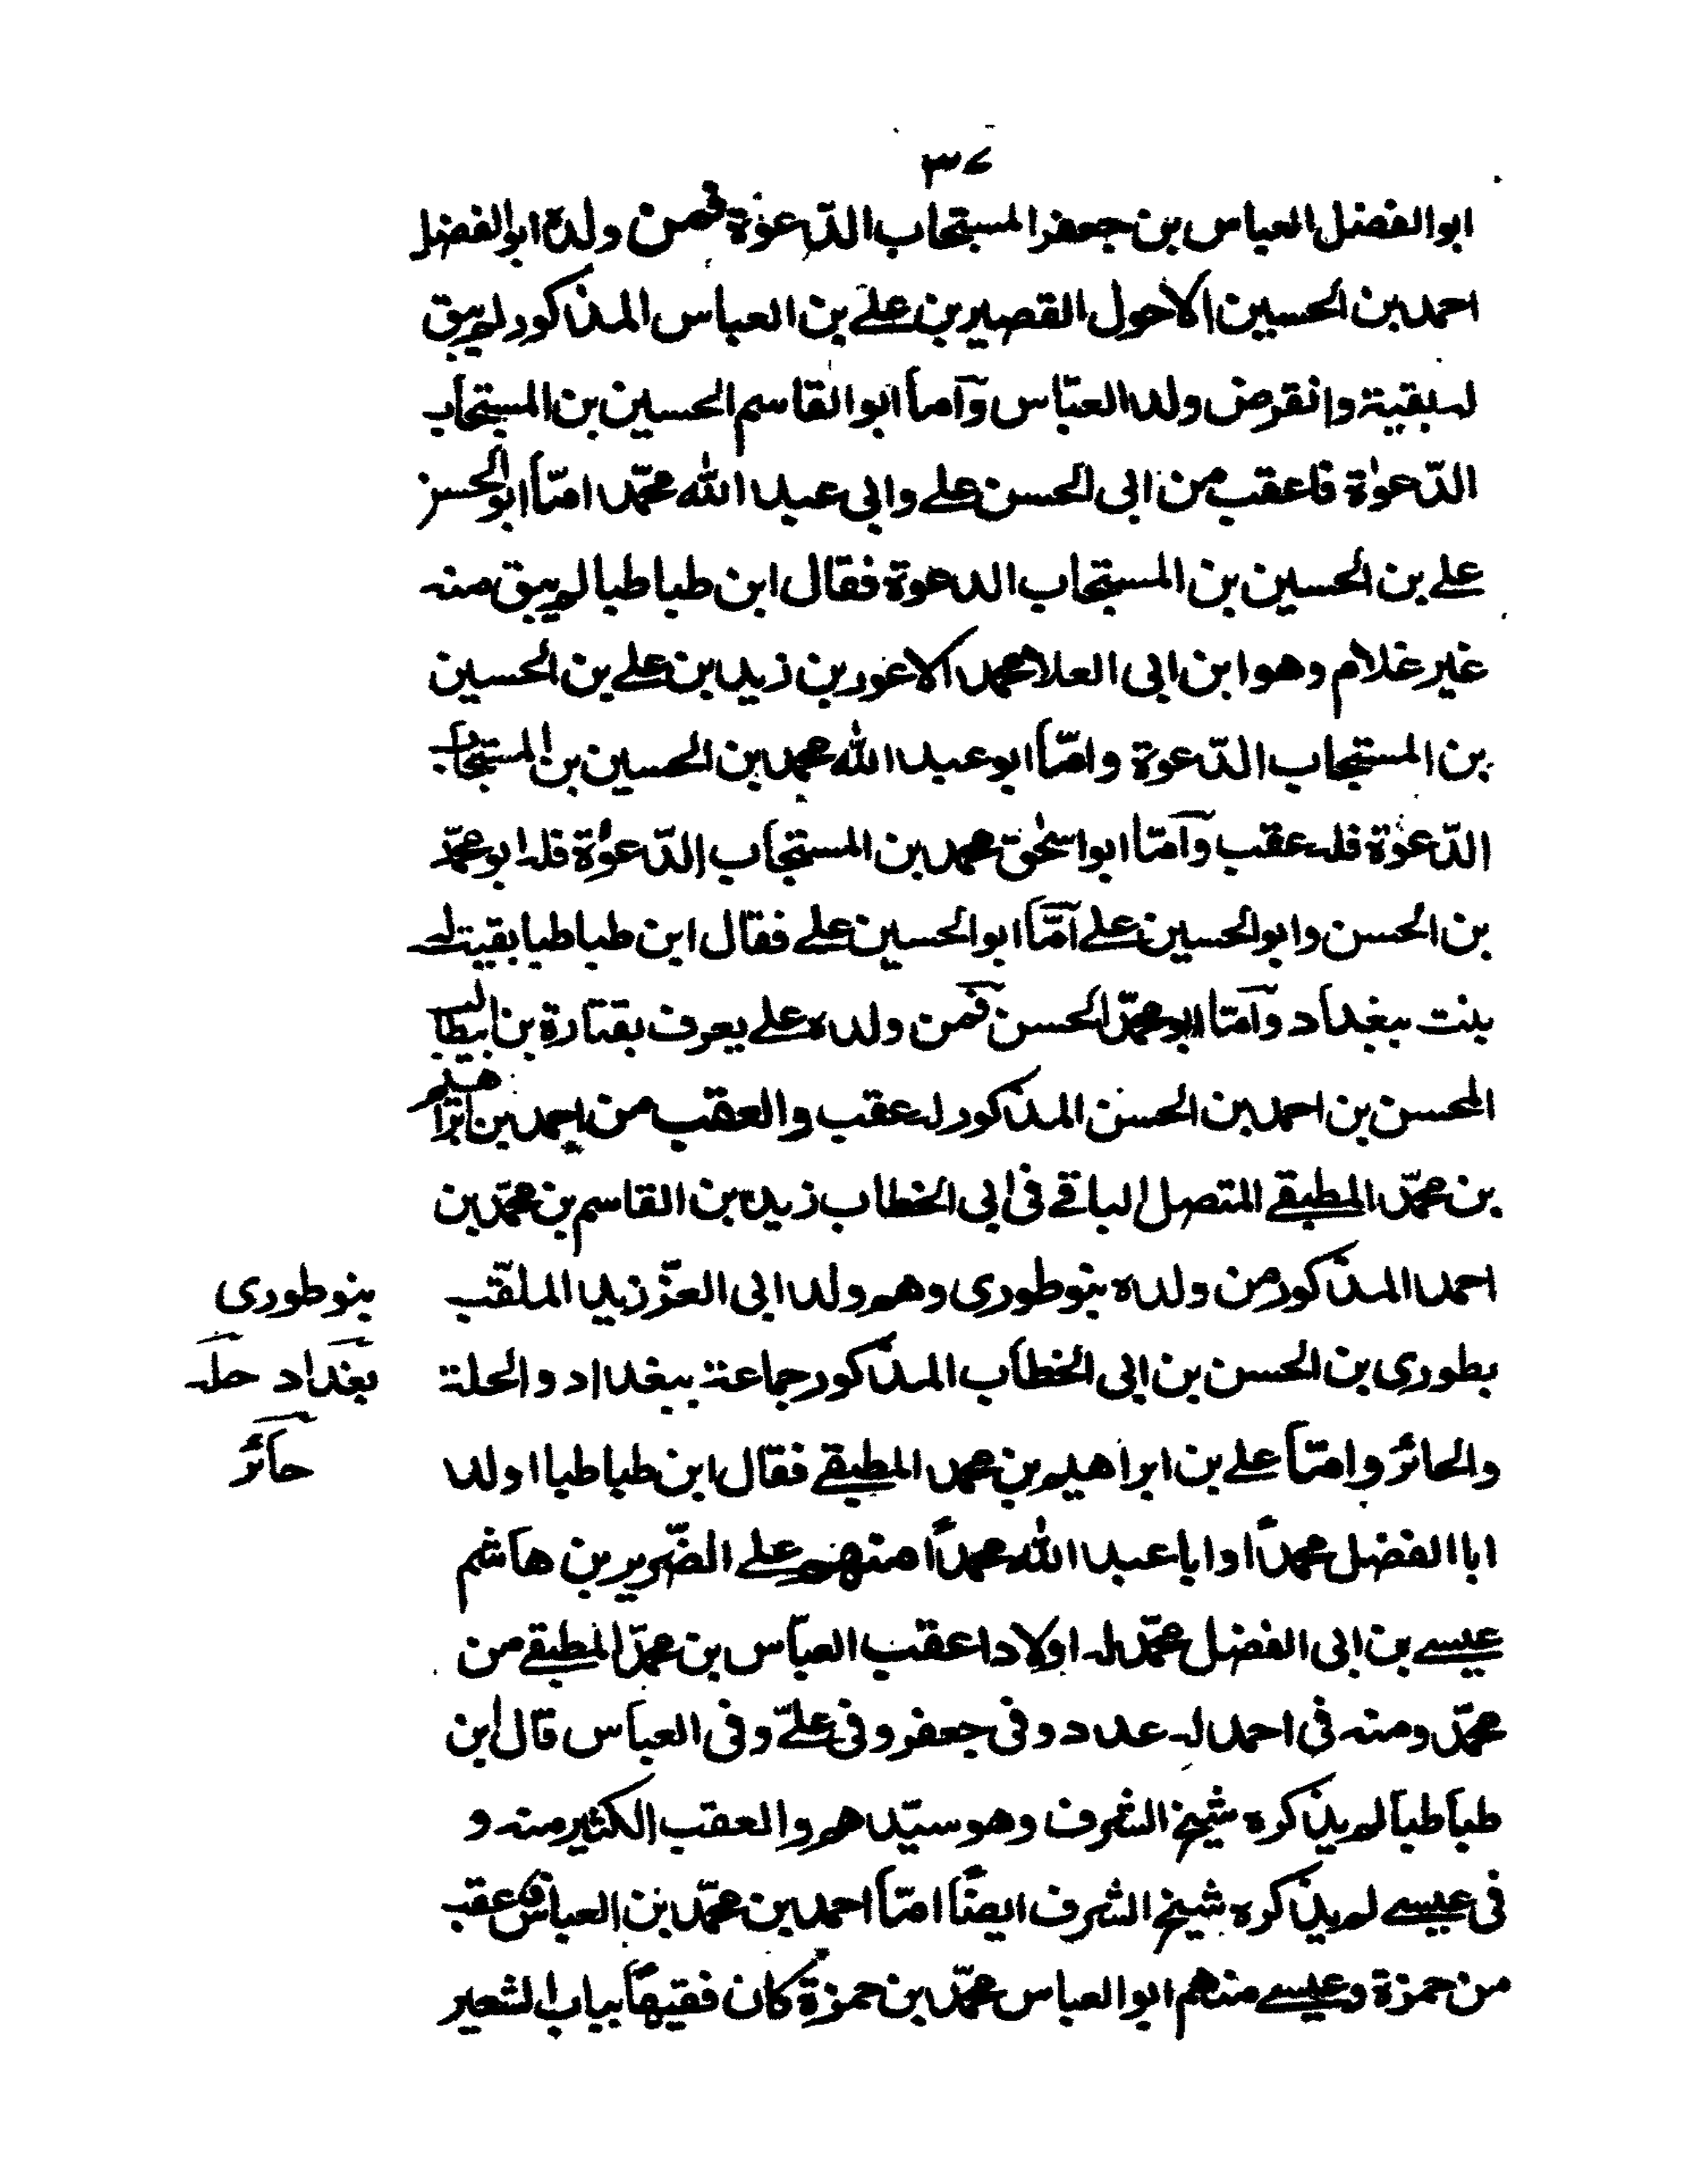 ٣٧
ابوالفضل العباس بن جعفر المستجاب الدّعوة فمن ولده ابوالفضل
احمد بن الحسين الاحول القصير بن علے بن العباس المذكور لم يبق
له بقية وانقرض ولد العبّاس وآما ابوالقاسم الحسين بن المستجاب
الدّعوة فاعقب من ابى الحسن علے وابى عبد الله محمّد امّا ابوالحسن
علے بن الحسين بن المستجاب الدعوة فقال ابن طباطبا لم يبق منه
غير غلام وهو ابن ابى العلا محمد الاعور بن زيد بن علے بن الحسين
بن المستجاب الدّعوة وامّا ابو عبد الله محمد بن الحسين بن المستجاب
الدّعوة فله عقب وآمّا ابواسحٰق محمد بن المستجاب الدّعوة فله ابو محمّد
بن الحسن وابوالحسين علے آمّا ابوالحسين علے فقال ابن طباطبا بقيت له
بنت ببغداد وآمّا ابو محمّد الحسن فمن ولده علے يعرف بقتارة بن ابيطالب
المحسن بن احمد بن الحسن المذكور له عقب والعقب من احمد بن ابراهيم
بن محمّد المطبقے المتصل الباقے فى ابى الخطاب زيد بن القاسم بن محمّد بن
احمد المذكور من ولده بنو طورى وهم ولد ابى العزّ زيد الملقّب
بطورى بن الحسن بن ابى الخطاب المذكور جماعة ببغداد والحلة
والحائر وامّا علے بن ابراهيم بن محمد المطبقے فقال ابن طباطبا اولد
ابا الفضل محمداً وابا عبد الله محمداً منهم علے الضّرير بن هاشم
عيسے بن ابى الفضل محمّد له اولاد اعقب العبّاس بن محمّد المطبقے من
محمّد ومنه فى احمد له عدد وفى جعفر وفى علےّ وفى العباس قال ابن
طباطبا لم يذكره شيخ الشرف وهو سيّدهم والعقب الكثير منه و
فى عيسے لم يذكره شيخ الشرف ايضاً امّا احمد بن محمّد بن العباس فاعقب
من حمزة وعيسے منهم ابوالعباس محمّد بن حمزة كان فقيهاً بباب الشعير
بنو طورى
بغداد حله
حائر